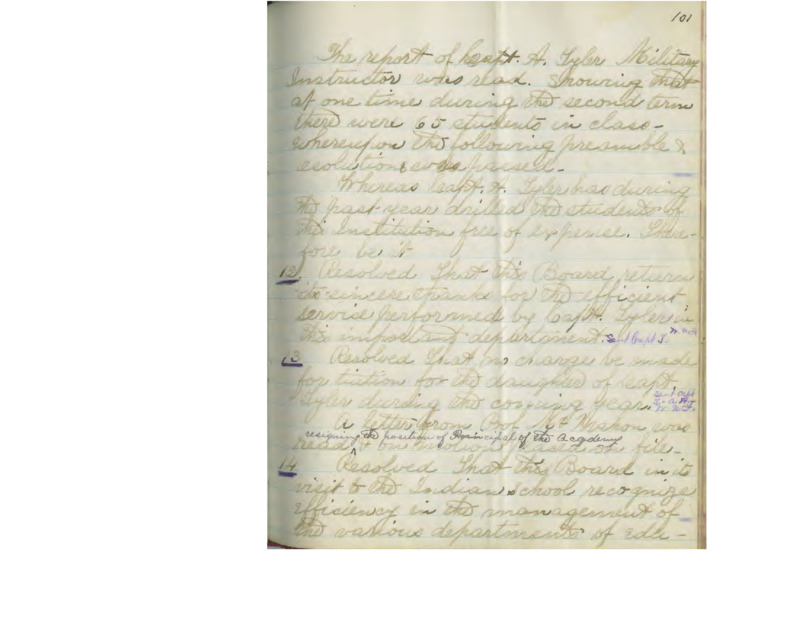 101
The report of Capt. H. Tyler Military
Instructor was read. Showing that
at one time during the second term
there were 65 students in class -
whereupon the following preamble &
resolutions was passed -
Whereas Capt. H. Tyler has during
the past year drilled the students of
this Institution free of expense. There-
fore be it
12. Resolved That this Board return
its sincere thanks for the efficient
service performed by Capt. Tyler in
this important department. Sent Capt T.
13 Resolved That no charge be made
for tuition for the daughter of Capt.
Tyler during the coming year. Sent Capt
A letter from was
resigning the position of Principal of the Academy
read & on motion placed on file -
14 Resolved That this Board in its
visit to the Indian school recognize
efficiency in the management of
the various departments of edu -